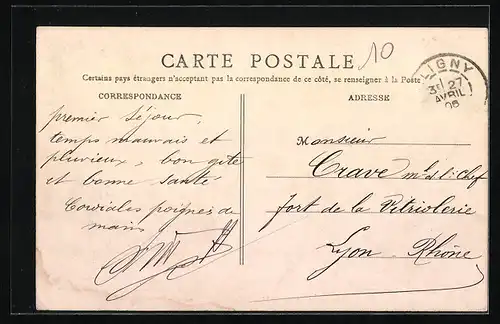 CARTE POSTALE
10
Certains pays étrangers n'acceptant pas la correspondance de ce côté, se renseigner à la Poste
CORRESPONDANCE
ADRESSE
LIGNY
3E 27
AVRIL
06
premier séjour,
temps mauvais et
pluvieux, bon gite
et bonne santé
Cordiales poignés de
mains
Monsieur
Crave m^l d. l: chef
fort de la Vitriolerie
Lyon - Rhône